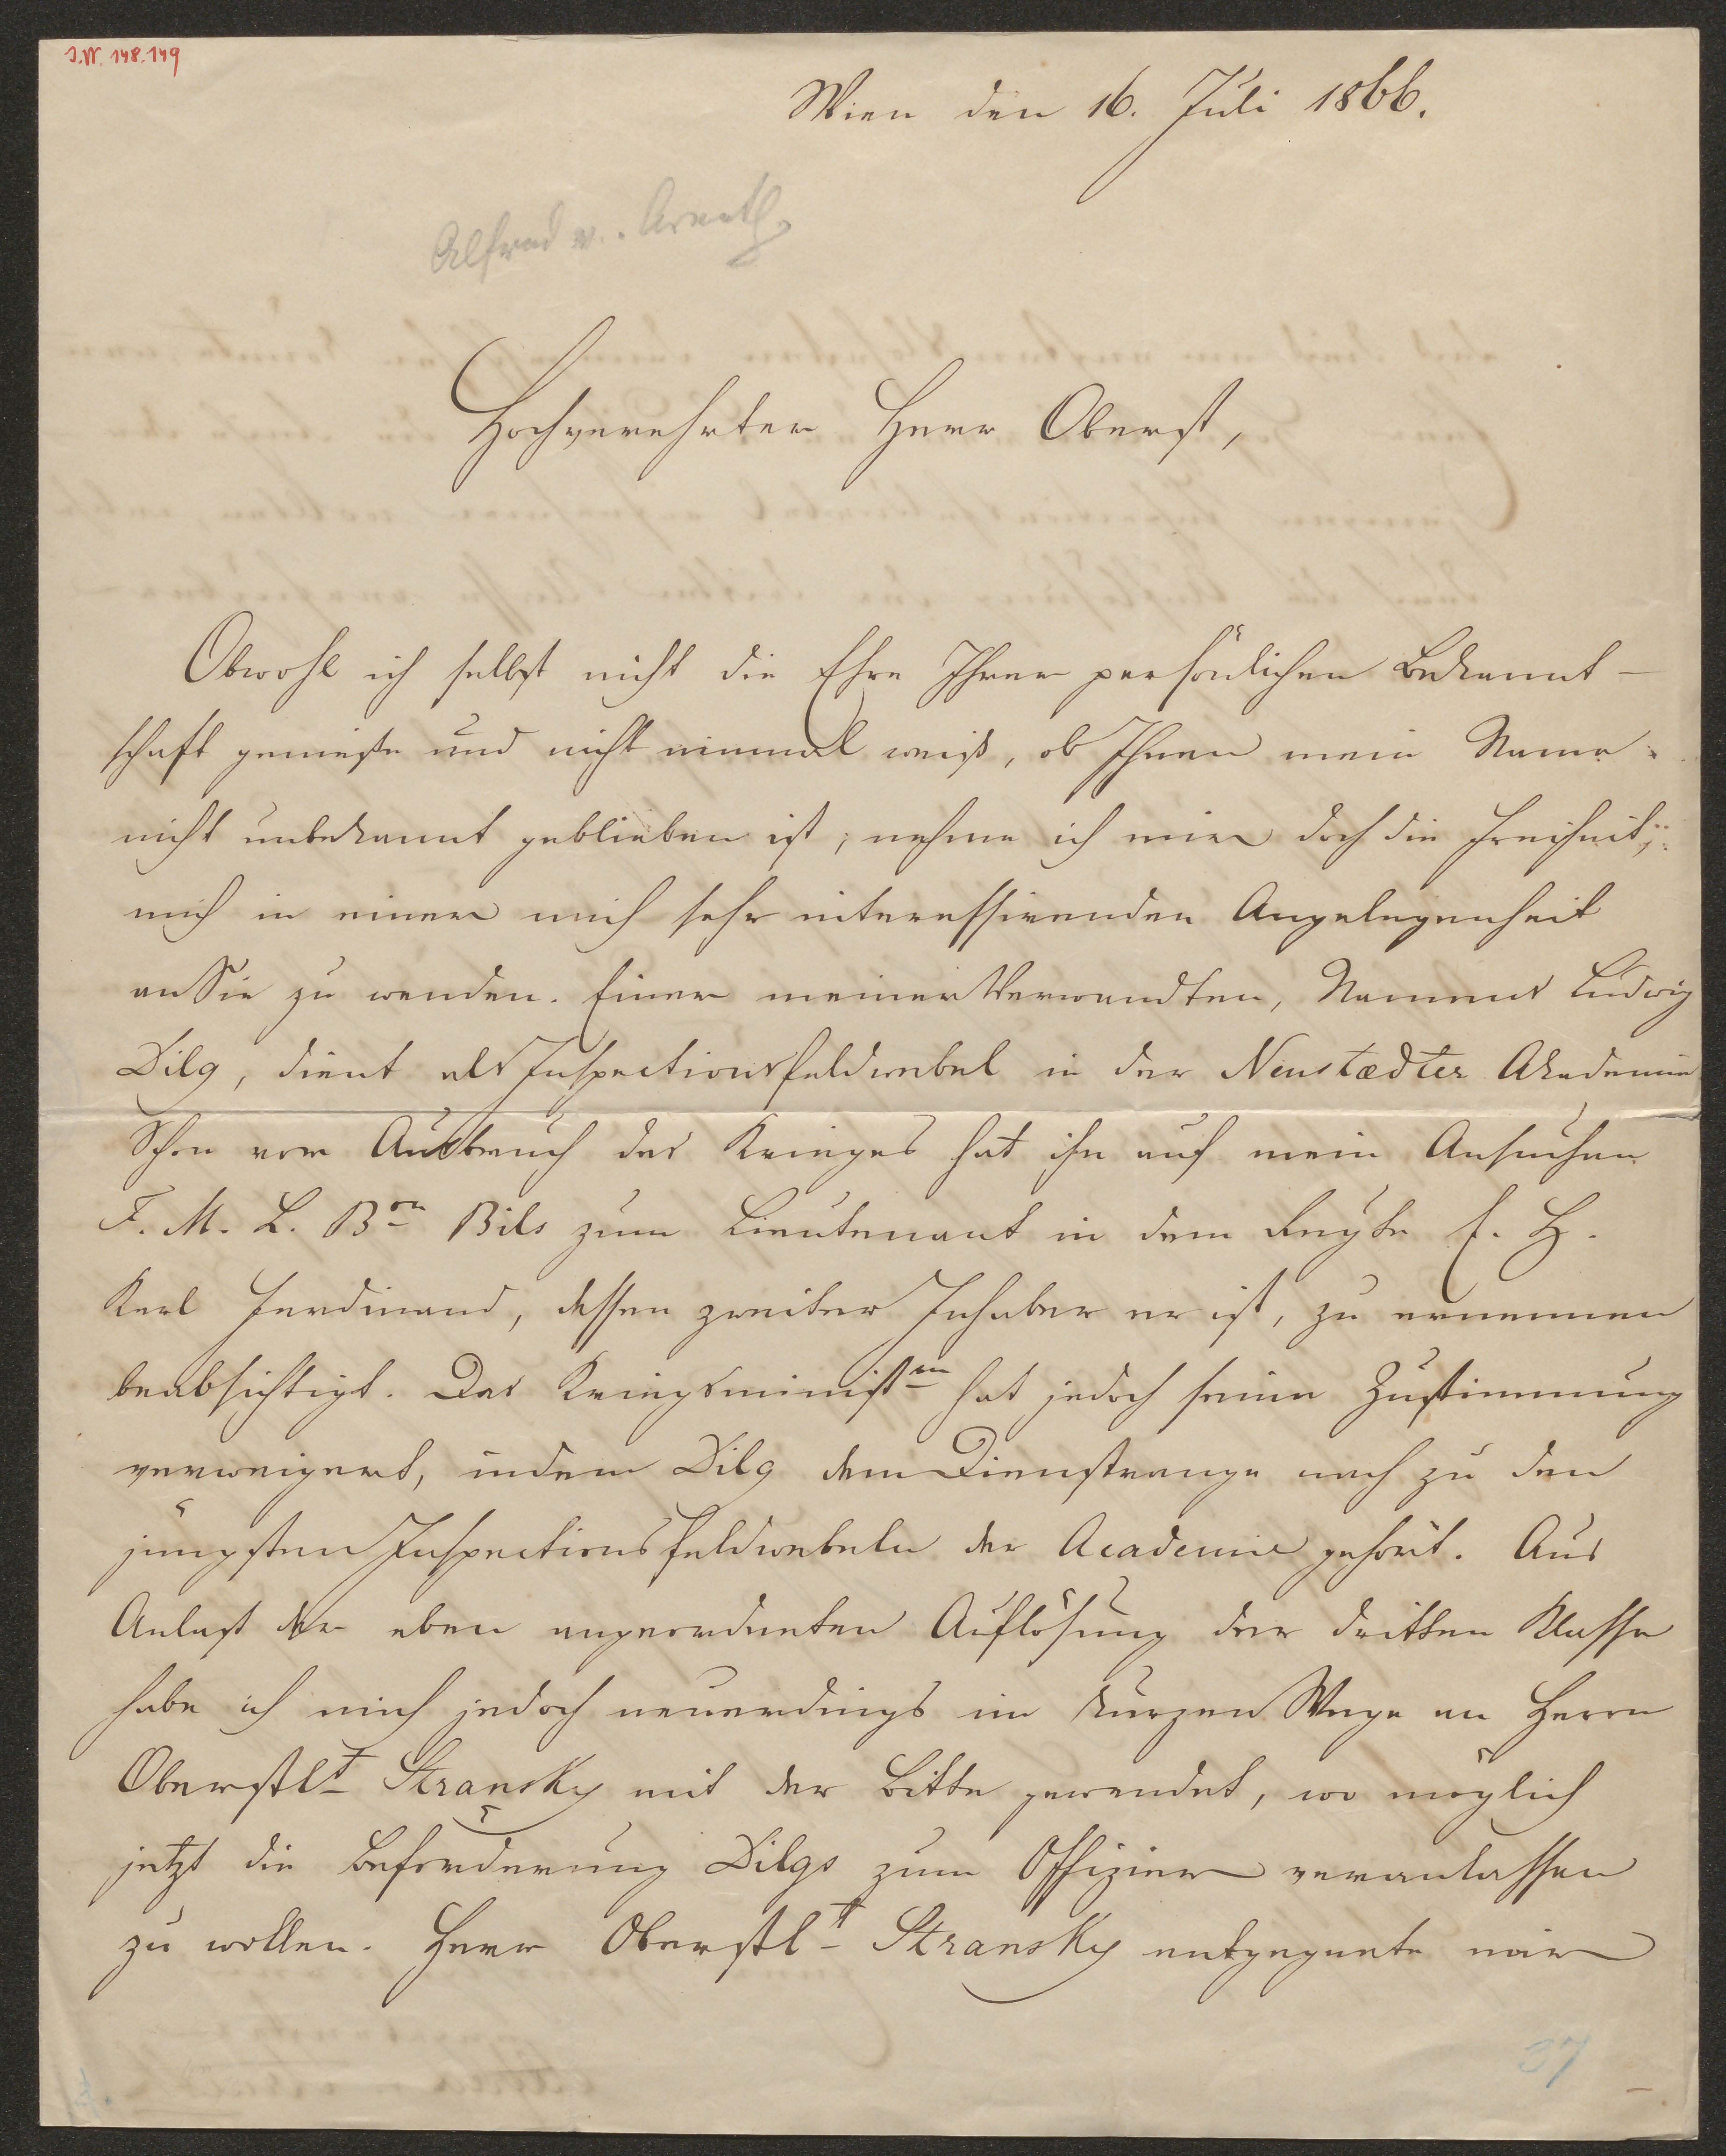 J.N. 148.149
Wien den 16. Juli 1866.
Alfred v. Arneth
Hochverehrter Herr Oberst,
Obwohl ich selbst nicht die Ehre Ihrer persönlichen Bekannt-
schaft genieße und nicht einmal weiß, ob Ihnen mein Name
nicht unbekannt geblieben ist, nehme ich mir doch die Freiheit,
mich in einer mich sehr interessirenden Angelegenheit
an Sie zu wenden. Einer meiner Verwandten, Namens Ludwig
Dilg, dient als Inspectionsfeldwebel in der Neustædter Akademie
Schon vor Ausbruch des Krieges hat ihn auf mein Ansuchen
F. M. L. Bon Bils zum Lieutenant in dem Regte E. H.
Karl Ferdinand, dessen zweiter Inhaber er ist, zu ernennen
beabsichtigt. Das Kriegsministm hat jedoch seine Zustimmung
verweigert, indem Dilg dem Dienstrange nach zu den
jüngsten Inspectionsfeldwebeln der Academie gehört. Aus
Anlaß der eben angeordneten Auflösung der dritten Klasse
habe ich mich jedoch neuerdings im kurzen Wege an Herrn
Oberstlt Stransky mit der Bitte gewendet, wo möglich
jetzt die Beförderung Dilgs zum Offizier veranlassen
zu wollen. Herr Oberstlt Stransky entgegnete mir
37